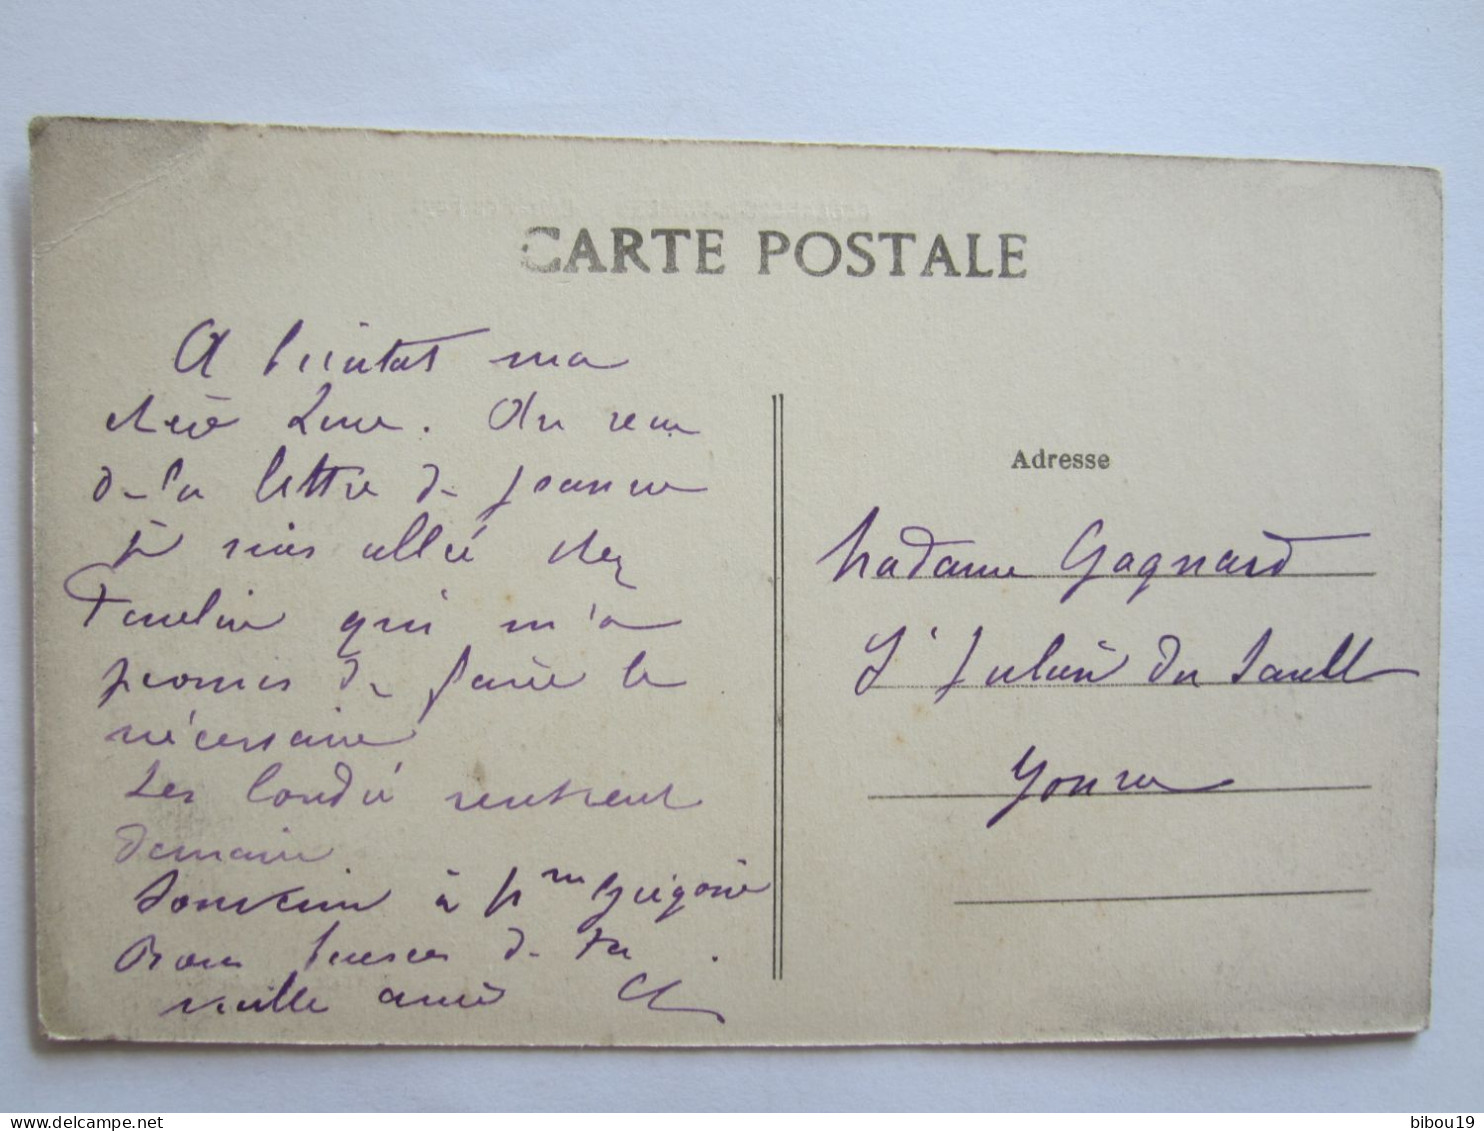 CARTE POSTALE
A bientot ma
chère Lucie. Au reçu
de la lettre de Jeanne
je suis allée chez
qui m'a
promis de faire le
nécessaire
Les rentrent
demain
Souvenir à Mme Grégoire
Bons baisers de ta
vieille amie
Adresse
Madame Gagnard
St Julien du Sault
Yonne
bibou19